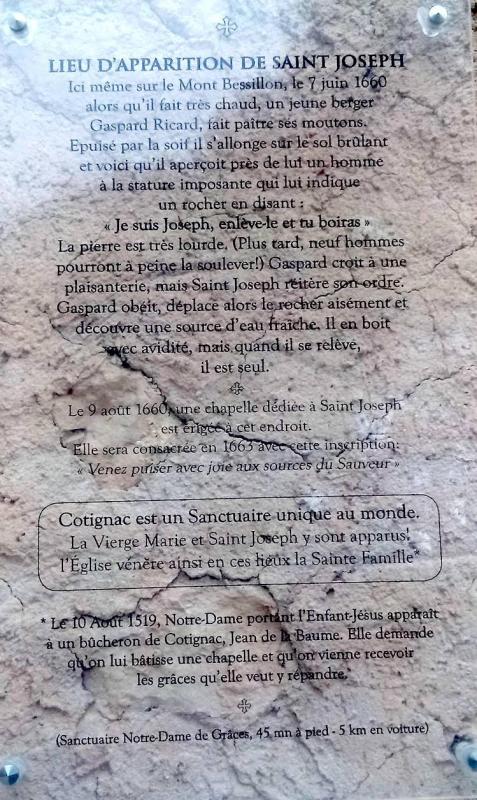 LIEU D'APPARITION DE SAINT JOSEPH
Ici même sur le Mont Bessillon, le 7 juin 1660
alors qu'il fait très chaud, un jeune berger
Gaspard Ricard, fait paître ses moutons.
Epuisé par la soif il s'allonge sur le sol brûlant
et voici qu'il aperçoit près de lui un homme
à la stature imposante qui lui indique
un rocher en disant :
« Je suis Joseph, enlève-le et tu boiras »
La pierre est très lourde. (Plus tard, neuf hommes
pourront à peine la soulever!) Gaspard croit à une
plaisanterie, mais Saint Joseph réitère son ordre.
Gaspard obéit, déplace alors le rocher aisément et
découvre une source d'eau fraîche. Il en boit
avec avidité, mais quand il se relève,
il est seul.
Le 9 août 1660, une chapelle dédiée à Saint Joseph
est érigée à cet endroit.
Elle sera consacrée en 1663 avec cette inscription:
« Venez puiser avec joie aux sources du Sauveur »
Cotignac est un Sanctuaire unique au monde.
La Vierge Marie et Saint Joseph y sont apparus!
l'Église vénère ainsi en ces lieux la Sainte Famille*
* Le 10 Août 1519, Notre-Dame portant l'Enfant-Jésus apparaît
à un bûcheron de Cotignac, Jean de la Baume. Elle demande
qu'on lui bâtisse une chapelle et qu'on vienne recevoir
les grâces qu'elle veut y répandre.
(Sanctuaire Notre-Dame de Grâces, 45 mn à pied - 5 km en voiture)